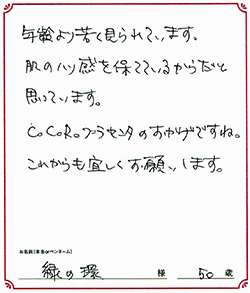 年齢より若く見られています。
肌のハリ感を保てているからだと
思っています。
CoCoRo.プラセンタのおかげですね。
これからも宜しくお願いします。
お名前(本名orペンネーム)
緑の環 様 50 歳